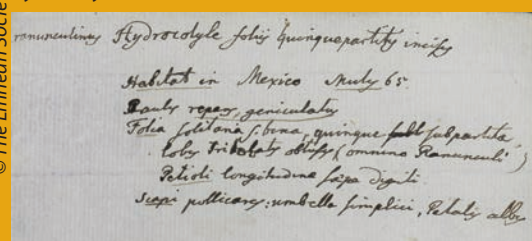 © The Linnean Socie
ranunculinus Hydrocotyle foliis quinquepartitis incisis
Habitat in Mexico Mutis 65.
Caulis repens, geniculatus
Folia solitaria s. bina, quinque subpartita,
lobis trilobatis obtusis (omnino Ranunculi)
Petioli longitudine digiti
Scapi pollicares: umbella simplici, Petalis albis